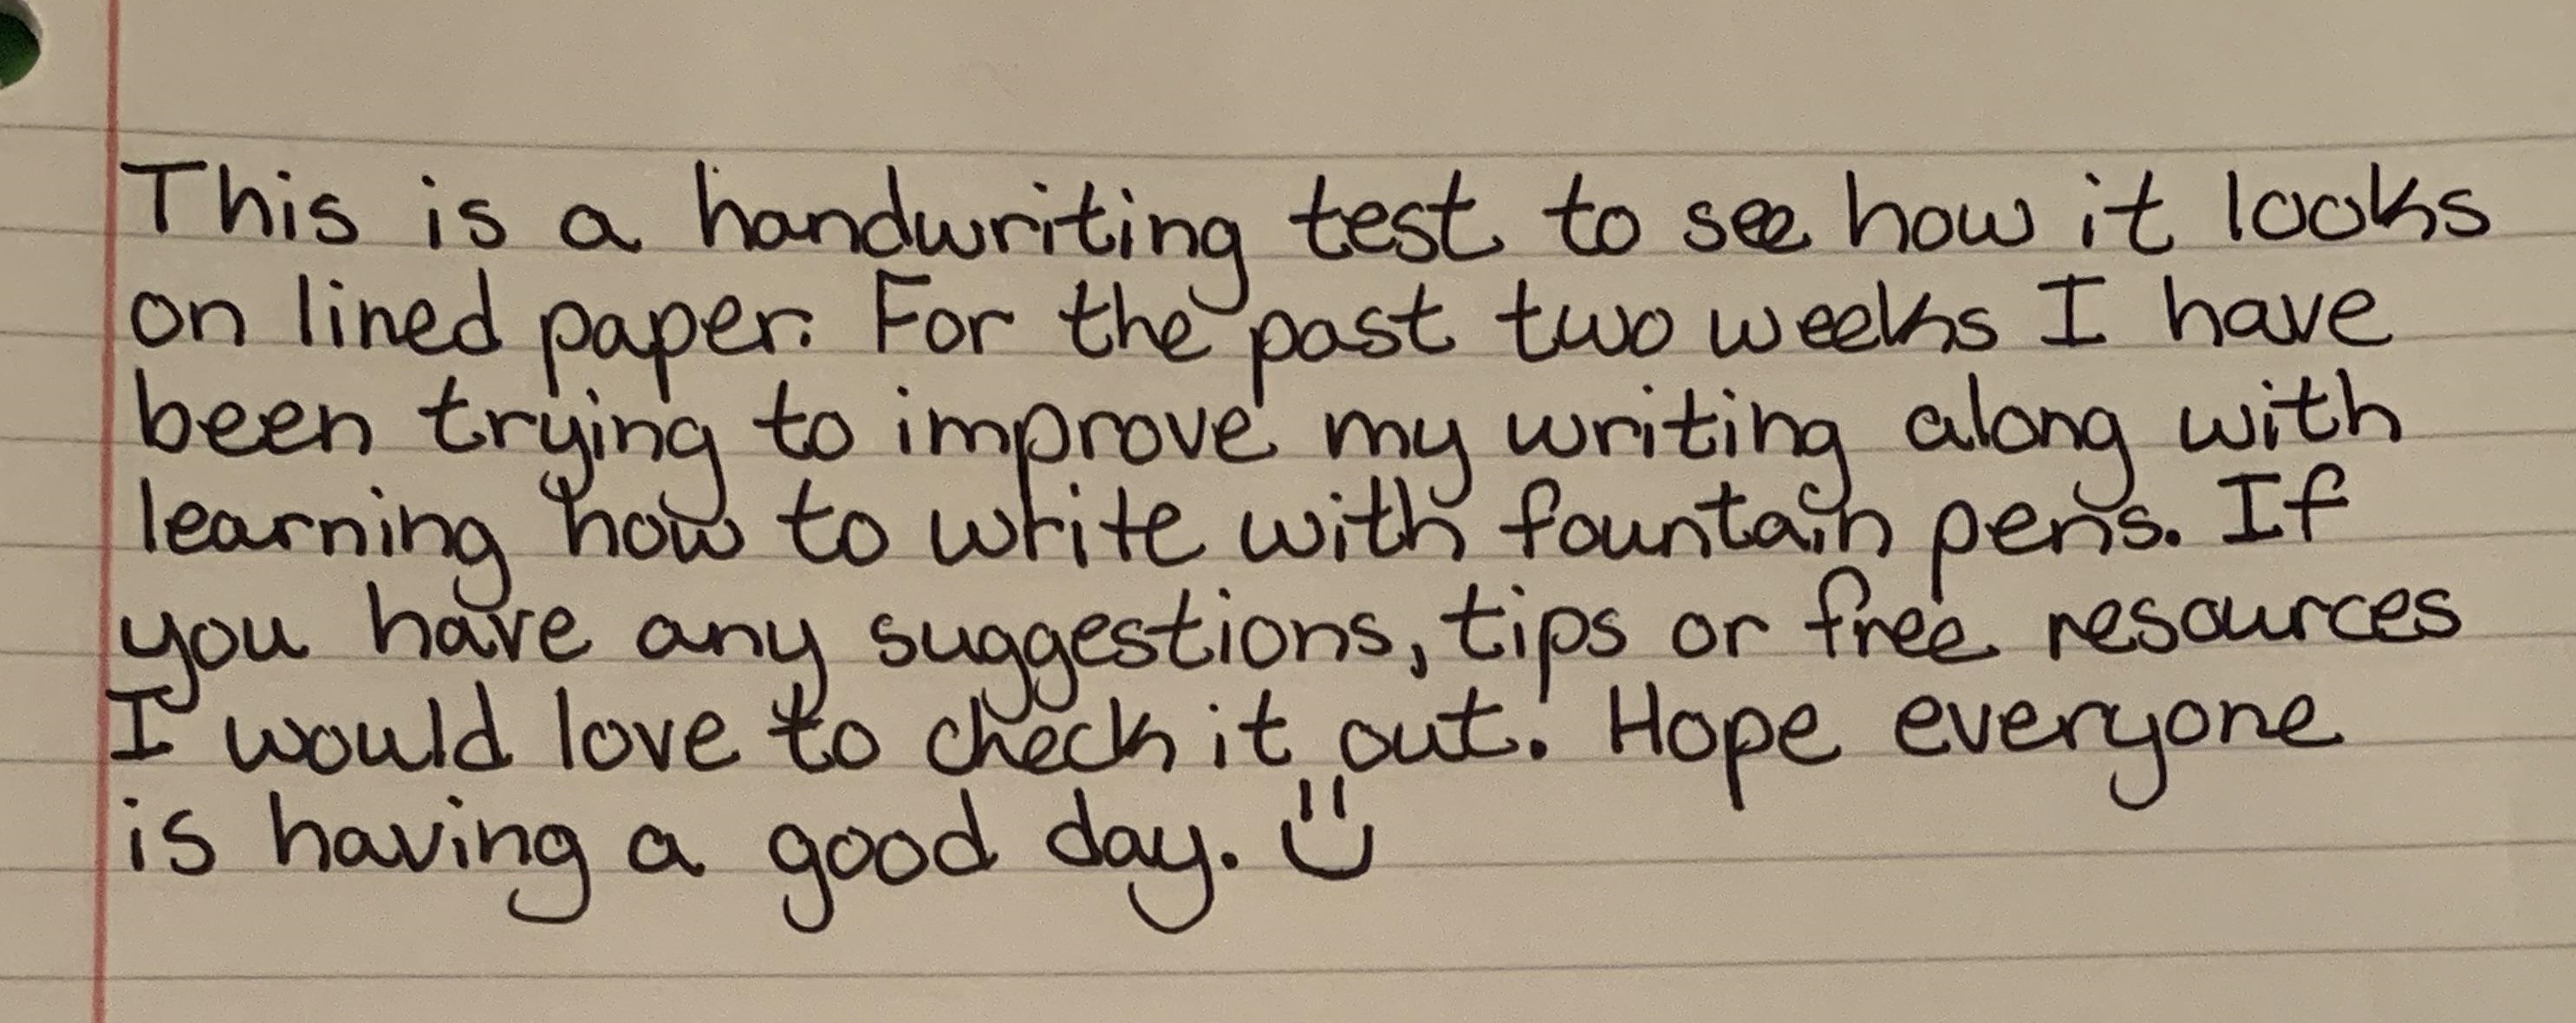 This is a handwriting test to see how it looks
on lined paper. For the past two weeks I have
been trying to improve my writing along with
learning how to write with fountain pens. If
you have any suggestions, tips or free resources
I would love to check it out. Hope everyone
is having a good day. :)